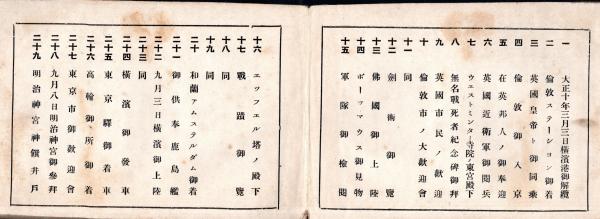 一 大正十年三月三日橫濱港御解纜
二 倫敦ステーション御着
三 英國皇帝ト御同乘
四 倫敦御入京
五 在英邦人ノ御奉迎
六 英國近衞軍御閱兵
七 ウエストミンター寺院ノ東宮殿下
八 無名戰死者紀念碑御拜
九 英國市民ノ歡迎
十 倫敦市ノ大歡迎會
十一 同
十二 劍術御覽
十三 佛國御上陸
十四 ポーツマウス御見物
十五 軍隊御檢閱
十六 エッフエル塔ノ殿下
十七 戰蹟御覽
十八 同
十九 同
二十 和蘭アムステルダム御着
二十一 御供奉鹿島艦
二十二 九月三日橫濱御上陸
二十三 同
二十四 橫濱御發車
二十五 東京驛御着車
二十六 高輪御所御着
二十七 東京市御歡迎會
二十八 九月八日明治神宮御參拜
二十九 明治神宮神饌井戶